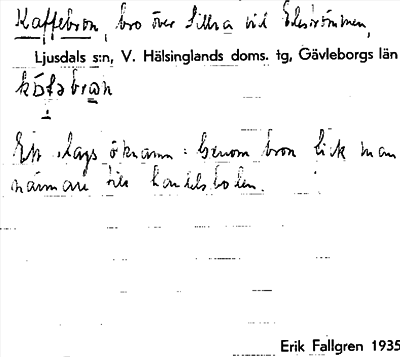 Kaffebron, bro över Lillån vid Elströmmen,
Ljusdals s:n, V. Hälsinglands doms. tg, Gävleborgs län
Ett slags öknamn: Genom bron fick man
närmare till handelsboden.
Erik Fallgren 1935